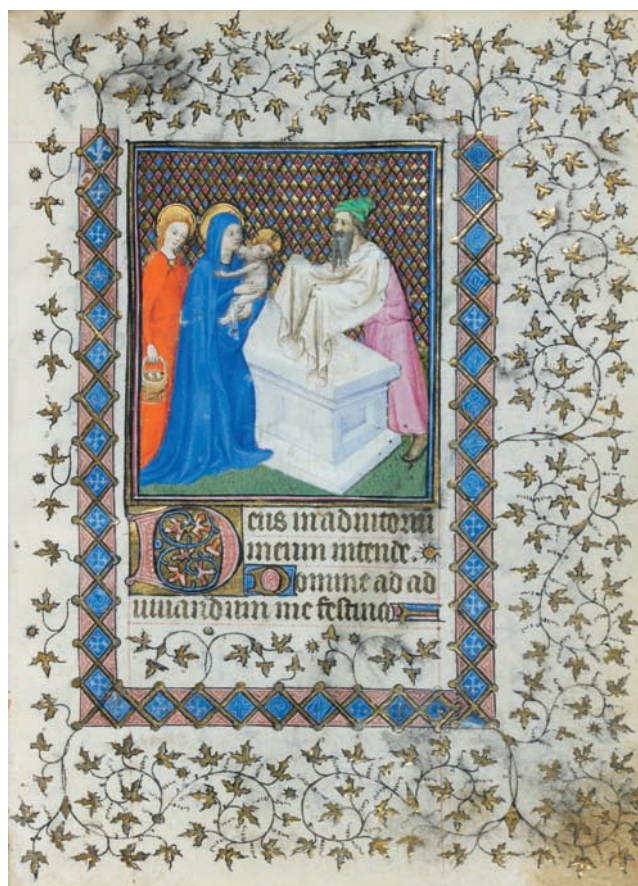 Deus in adiutoriū
meum intende.
Domine ad ad
iuuandum me festina